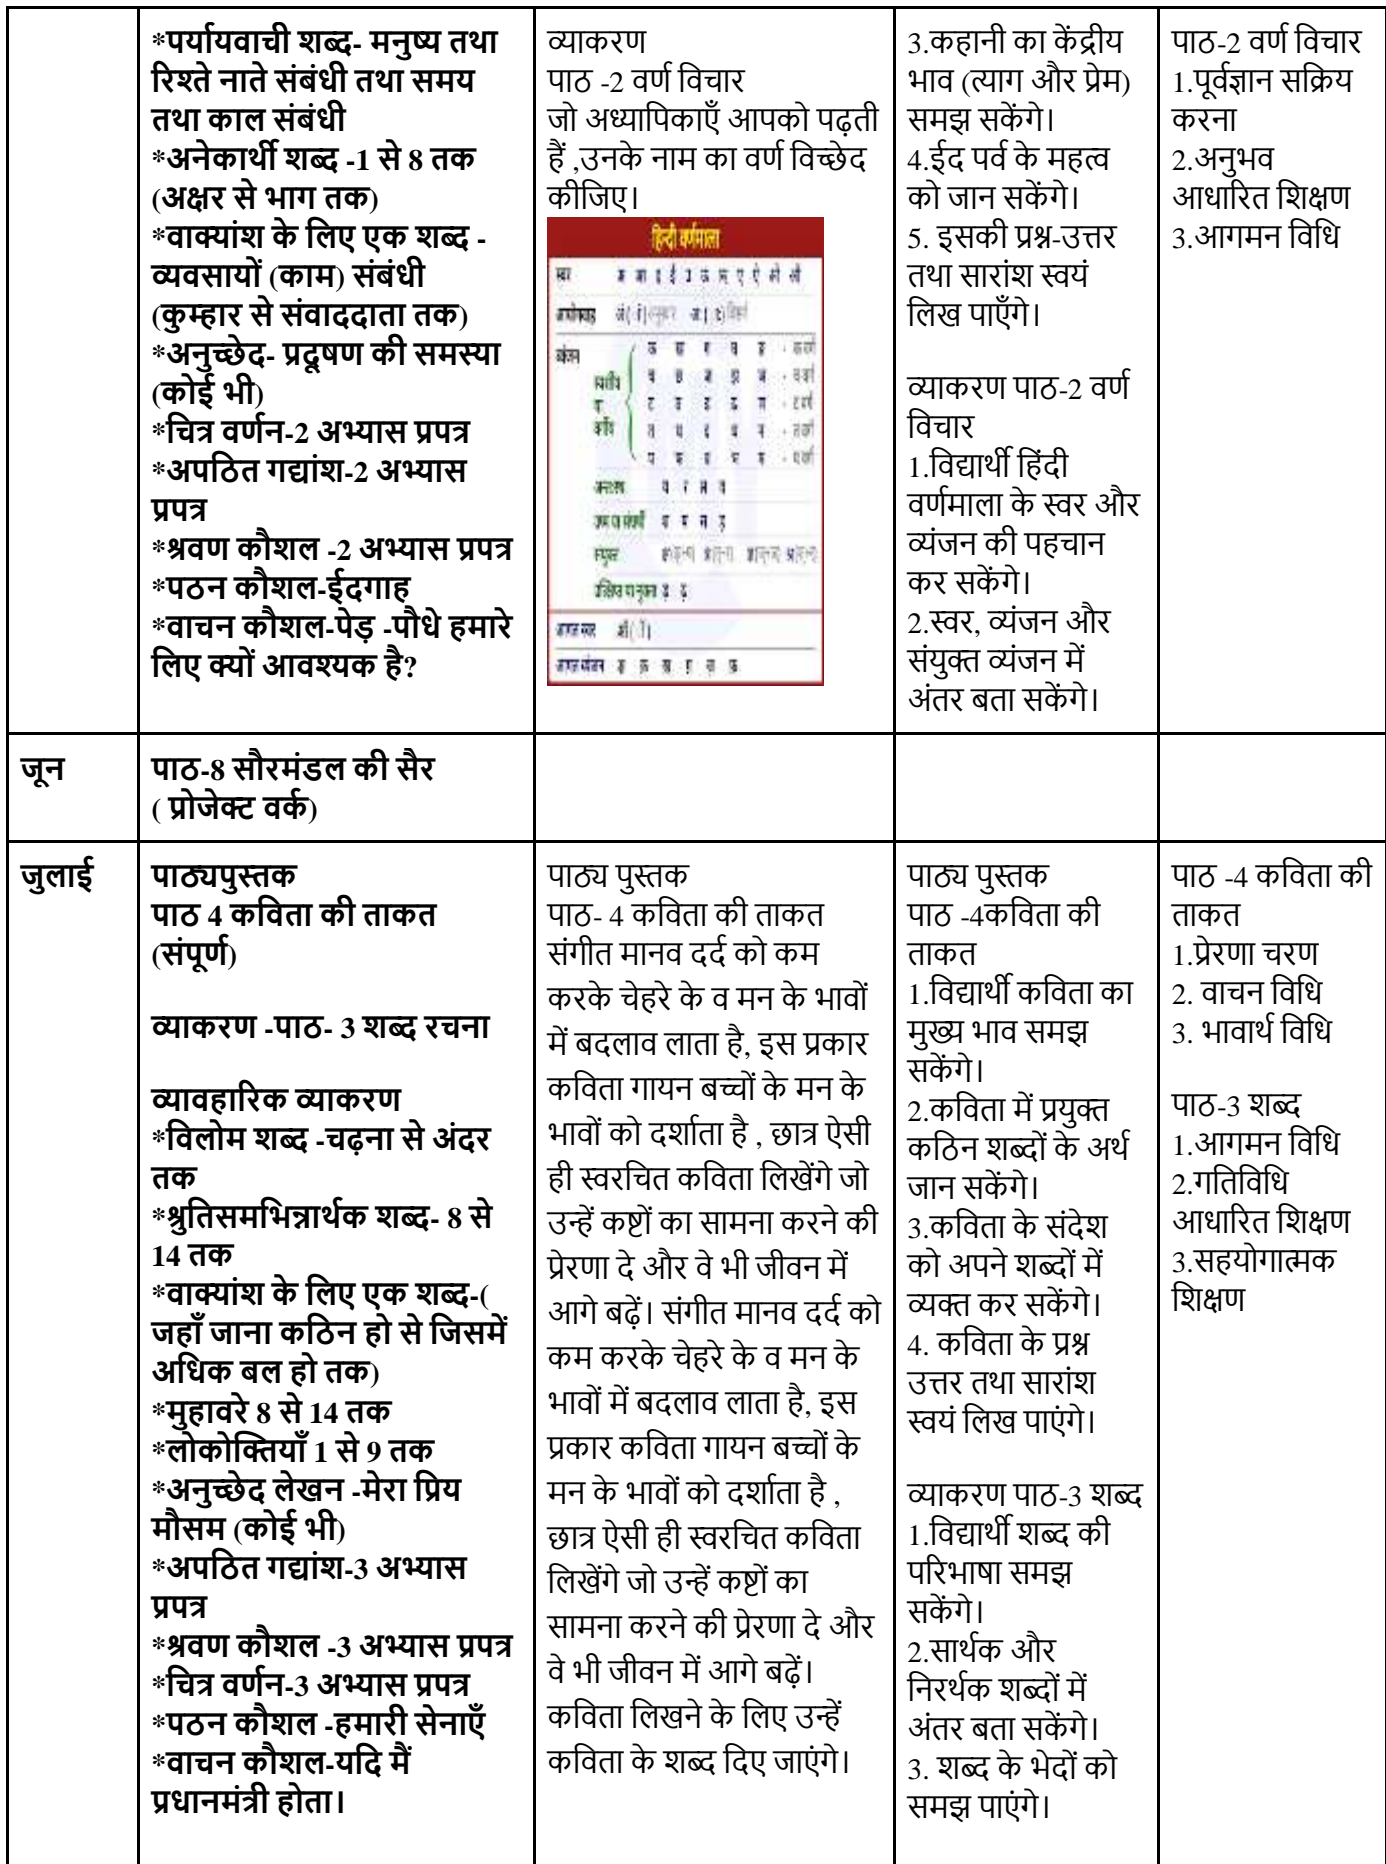 *पर्यायवाची शब्द- मनुष्य तथा
रिश्ते नाते संबंधी तथा समय
तथा काल संबंधी
*अनेकार्थी शब्द -1 से 8 तक
(अक्षर से भाग तक)
*वाक्यांश के लिए एक शब्द -
व्यवसायों (काम) संबंधी
(कुम्हार से संवाददाता तक)
*अनुच्छेद- प्रदूषण की समस्या
(कोई भी)
*चित्र वर्णन-2 अभ्यास प्रपत्र
*अपठित गद्यांश-2 अभ्यास
प्रपत्र
*श्रवण कौशल -2 अभ्यास प्रपत्र
*पठन कौशल-ईदगाह
*वाचन कौशल-पेड़ -पौधे हमारे
लिए क्यों आवश्यक है?
व्याकरण
पाठ -2 वर्ण विचार
जो अध्यापिकाएँ आपको पढ़ती
हैं ,उनके नाम का वर्ण विच्छेद
कीजिए।
हिन्दी वर्णमाला
स्वर
व्यंजन
3.कहानी का केंद्रीय
भाव (त्याग और प्रेम)
समझ सकेंगे।
4.ईद पर्व के महत्व
को जान सकेंगे।
5. इसकी प्रश्न-उत्तर
तथा सारांश स्वयं
लिख पाएँगे।
व्याकरण पाठ-2 वर्ण
विचार
1.विद्यार्थी हिंदी
वर्णमाला के स्वर और
व्यंजन की पहचान
कर सकेंगे।
2.स्वर, व्यंजन और
संयुक्त व्यंजन में
अंतर बता सकेंगे।
पाठ-2 वर्ण विचार
1.पूर्वज्ञान सक्रिय
करना
2.अनुभव
आधारित शिक्षण
3.आगमन विधि
जून
पाठ-8 सौरमंडल की सैर
( प्रोजेक्ट वर्क)
जुलाई
पाठ्यपुस्तक
पाठ 4 कविता की ताकत
(संपूर्ण)
व्याकरण -पाठ- 3 शब्द रचना
व्यावहारिक व्याकरण
*विलोम शब्द -चढ़ना से अंदर
तक
*श्रुतिसमभिन्नार्थक शब्द- 8 से
14 तक
*वाक्यांश के लिए एक शब्द-(
जहाँ जाना कठिन हो से जिसमें
अधिक बल हो तक)
*मुहावरे 8 से 14 तक
*लोकोक्तियाँ 1 से 9 तक
*अनुच्छेद लेखन -मेरा प्रिय
मौसम (कोई भी)
*अपठित गद्यांश-3 अभ्यास
प्रपत्र
*श्रवण कौशल -3 अभ्यास प्रपत्र
*चित्र वर्णन-3 अभ्यास प्रपत्र
*पठन कौशल -हमारी सेनाएँ
*वाचन कौशल-यदि मैं
प्रधानमंत्री होता।
पाठ्य पुस्तक
पाठ- 4 कविता की ताकत
संगीत मानव दर्द को कम
करके चेहरे के व मन के भावों
में बदलाव लाता है, इस प्रकार
कविता गायन बच्चों के मन के
भावों को दर्शाता है , छात्र ऐसी
ही स्वरचित कविता लिखेंगे जो
उन्हें कष्टों का सामना करने की
प्रेरणा दे और वे भी जीवन में
आगे बढ़ें। संगीत मानव दर्द को
कम करके चेहरे के व मन के
भावों में बदलाव लाता है, इस
प्रकार कविता गायन बच्चों के
मन के भावों को दर्शाता है ,
छात्र ऐसी ही स्वरचित कविता
लिखेंगे जो उन्हें कष्टों का
सामना करने की प्रेरणा दे और
वे भी जीवन में आगे बढ़ें।
कविता लिखने के लिए उन्हें
कविता के शब्द दिए जाएंगे।
पाठ्य पुस्तक
पाठ -4कविता की
ताकत
1.विद्यार्थी कविता का
मुख्य भाव समझ
सकेंगे।
2.कविता में प्रयुक्त
कठिन शब्दों के अर्थ
जान सकेंगे।
3.कविता के संदेश
को अपने शब्दों में
व्यक्त कर सकेंगे।
4. कविता के प्रश्न
उत्तर तथा सारांश
स्वयं लिख पाएंगे।
व्याकरण पाठ-3 शब्द
1.विद्यार्थी शब्द की
परिभाषा समझ
सकेंगे।
2.सार्थक और
निरर्थक शब्दों में
अंतर बता सकेंगे।
3. शब्द के भेदों को
समझ पाएंगे।
पाठ -4 कविता की
ताकत
1.प्रेरणा चरण
2. वाचन विधि
3. भावार्थ विधि
पाठ-3 शब्द
1.आगमन विधि
2.गतिविधि
आधारित शिक्षण
3.सहयोगात्मक
शिक्षण